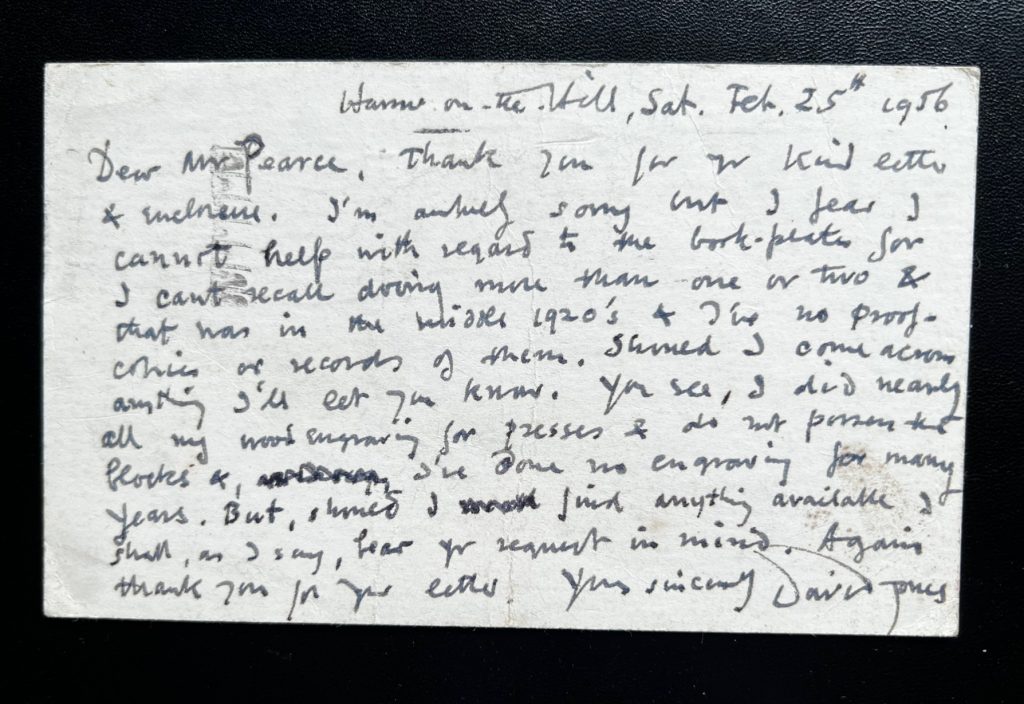 Harrow-on-the-Hill, Sat. Feb. 25th 1956.
Dear Mr Pearce, Thank you for yr kind letter
& enclosure. I'm awfully sorry but I fear I
cannot help with regard to the book-plates for
I cant recall doing more than one or two &
that was in the middle 1920's & I've no proof-
copies or records of them. Should I come across
anything I'll let you know. You see, I did nearly
all my wood engraving for presses & do not possess the
blocks &, I've done no engraving for many
years. But, should I find anything available I
shall, as I say, bear yr request in mind. Again
thank you for your letter Yours sincerely David Jones